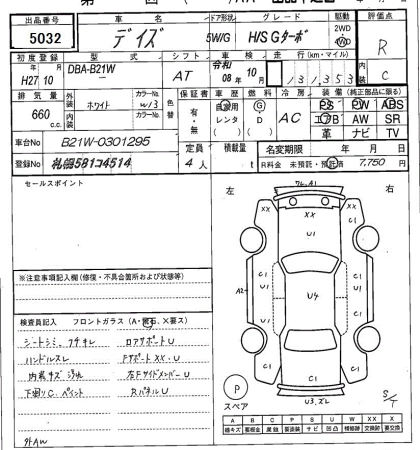 出品番号 車名 ドア形状 グレード 駆動 評価点
5032 デイズ 5W/G H/S Gターボ 2WD R
初度登録 型式 シフト 車検 走行(km・マイル) 内装
H27年10月 DBA-B21W AT 令和08年10月 13,353 C
排気量 外装 ホワイト カラーNo. W13 色替 保証書 車歴 燃料 冷房 装備(純正品部に限る)
660c.c. 内装 カラーNo. 有・無 自家用 レンタ G D AC PS PW ABS
エアB AW SR
革 ナビ TV
車台No B21W-0301295 定員 積載量 名変期限 年 月 日
登録No 札幌581コ4514 4人 t R料金 未預託・預託済 7,750円
セールスポイント
左 右
※注意事項記入欄(修復・不具合箇所および状態等)
検査員記入 フロントガラス(A・飛石、X要ス)
シートシミ、コゲキレ ロアサポートU
ハンドルスレ FサポートXX、U
内装キズ 汚れ 左FサイドメンバーU
下廻りC、ペイント RパネルU
外AW
XX XX XX
U1 U1
C1 C1
A2 U4
C1 C1
C1 C1
U3、ズレ
P
スペア
S/T
A B C P S U W X XX X
線キズ 腐蝕 サビ 凹凸 補修跡 交換跡 要交換